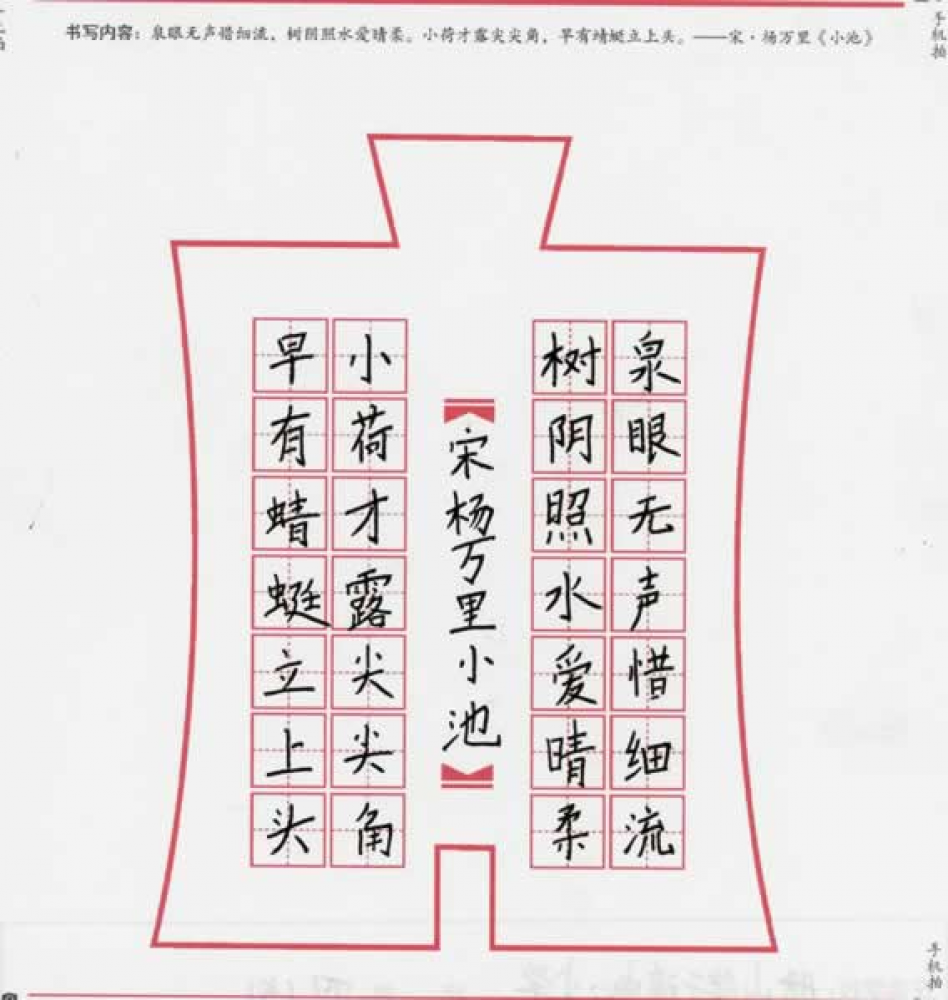 书写内容：泉眼无声惜细流，树阴照水爱晴柔。小荷才露尖尖角，早有蜻蜓立上头。——宋·杨万里《小池》
泉眼无声惜细流
树阴照水爱晴柔
宋杨万里小池
小荷才露尖尖角
早有蜻蜓立上头
手机拍
手机拍